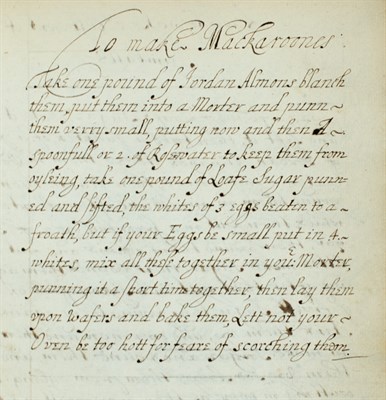 To make Mackaroones:
Take one pound of Jordan Almons blanch
them, put them into a Morter and punn~
them verry small, putting now and then 1
spoonfull, or 2 of Rosewater to keep them from
oyleing, take one pound of Loafe Sugar punn=
ed and sifted, the whites of 3 eggs beaten to a~
froath, but if your Eggs be small put in 4~
whites, mix all these together in your Morter,
punning it a short time together, then lay them
vpon Wafers and bake them Lett not your~
Oven be too hott for feare of scorching them.